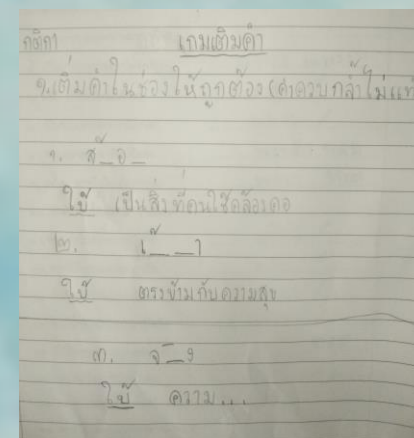 กติกา เกมเติมคำ
๑.เติมคำในช่องให้ถูกต้อง (คำควบกล้ำไม่แท้
๑. ส้_อ_
ใบ้ เป็นสิ่งที่คนใช้คล้องคอ
๒. เ_ _า
ใบ้ ตรงข้ามกับความสุข
๓. จ_ิง
ใบ้ ความ...